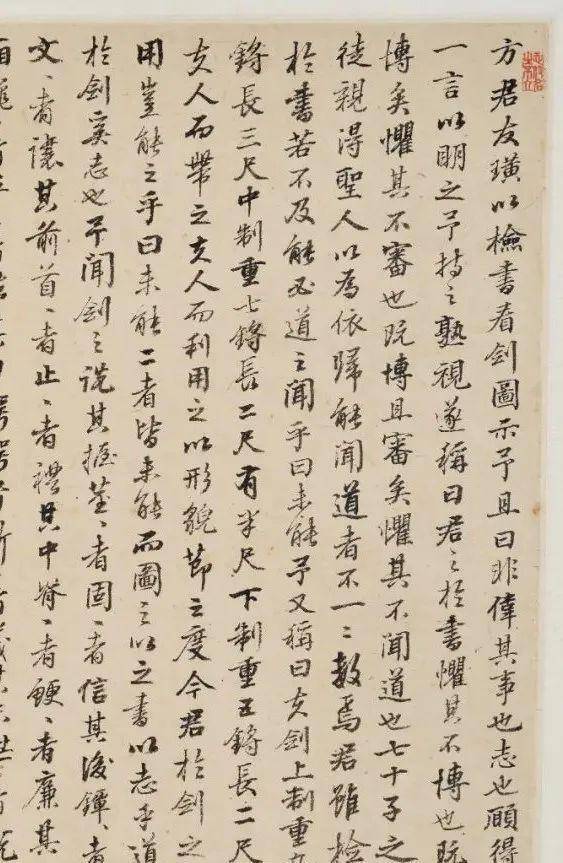 方君友璜以檢書看劍圖示予且曰非偉其事也志也願得
一言以明之予持之熟視遂稱曰君之於書懼其不博也既
博矣懼其不審也既博且審矣懼其不聞道也七十子之
徒親得聖人以為依歸能聞道者不一二數焉君雖檢
於書若不及能必道之聞乎曰未能予又稱曰夫劍上制重九
鋝長三尺中制重七鋝長二尺有半尺下制重五鋝長二尺
夫人而舉之夫人而利用之以形貌節之度今君於劍之
用豈能之乎曰未能二者皆未能而圖之以之書以志乎道
於劍奚志也予聞劍之說其握莖、者固、者信其後鐔、者
文、者讓其前首、者止、者禮其中脊、者鯁、者廉其